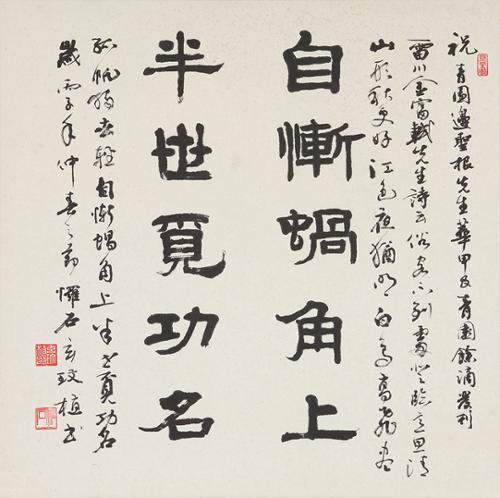 祝 青園邊聖根先生華甲及青園餘滴發刊
雷川金富軾先生詩云俗客不到處登臨意思清
山形秋更好江色夜猶明白鳥高飛盡
自慚蝸角上
半世覓功名
孤帆獨去輕自慚蝸角上半世覓功名
歲丙子年仲春之節 石玄玟植書